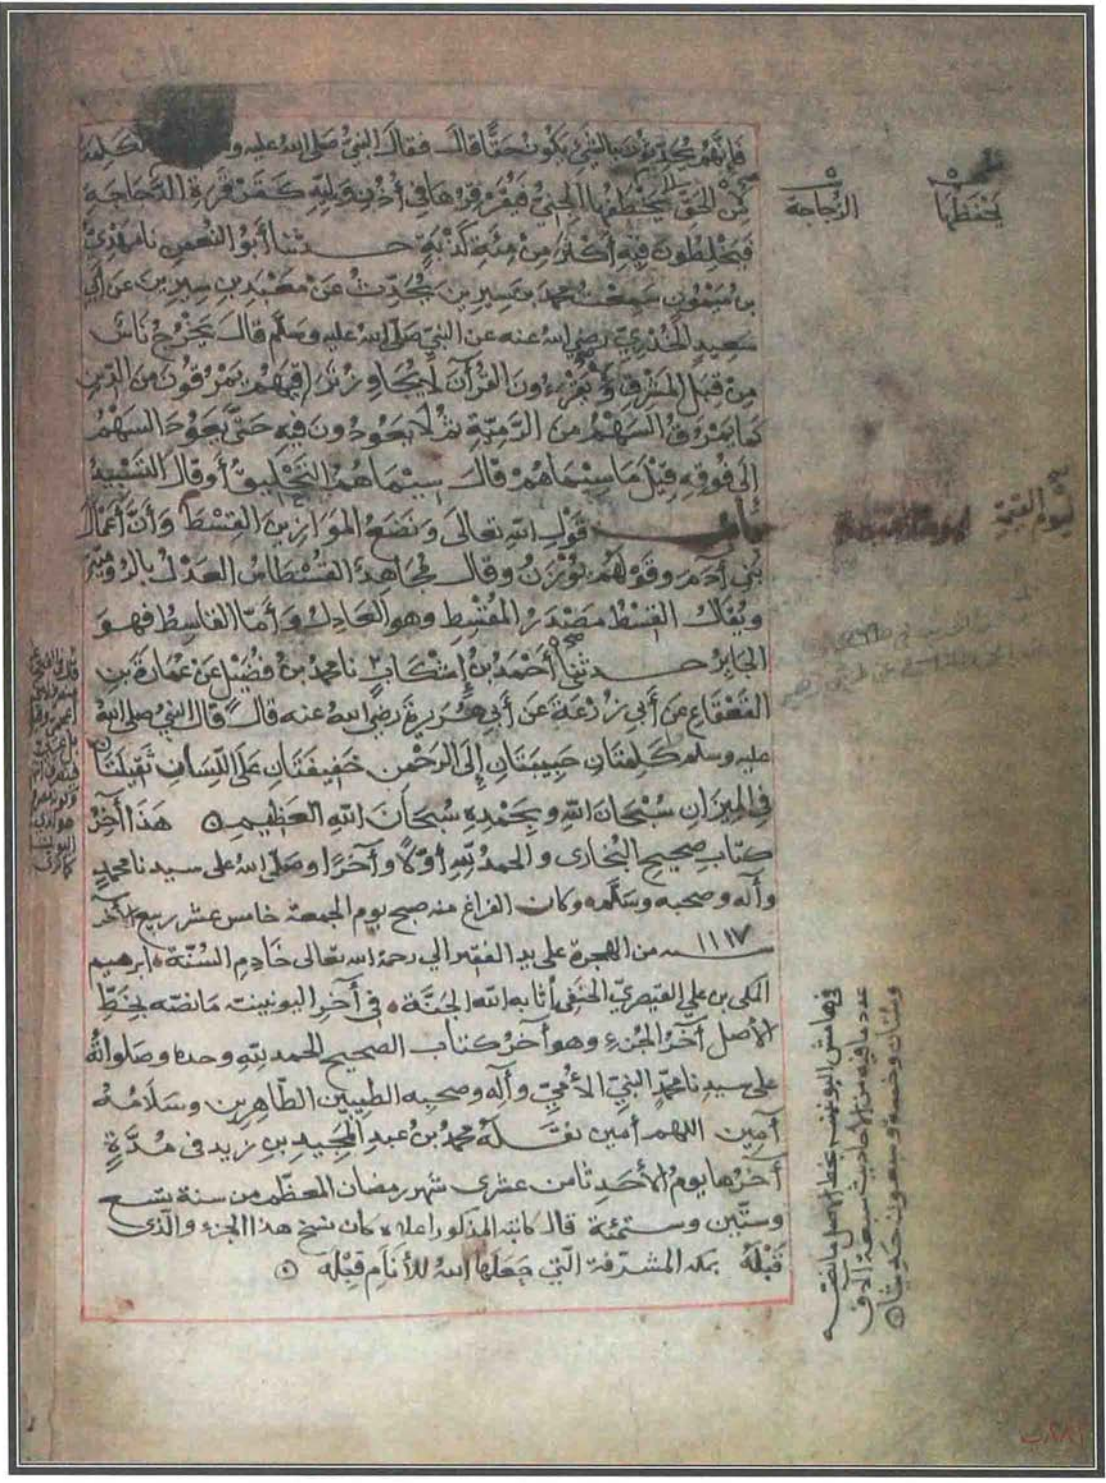 فإنهم يحدثون بالشيء يكون حقا قال فقال النبي صلى الله عليه الكلمة
من الحق يخطفها الجني فيقرقرها في أذن وليه كقرقرة الدجاجة
فيخلطون فيه أكثر من مئة كذبة حدثنا أبو النعمن نا مهدي
بن ميمون سمعت محمد بن سيرين يحدث عن معبد بن سيرين عن أبي
سعيد الخدري رضي الله عنه عن النبي صلى الله عليه وسلم قال يخرج ناس
من قبل المشرق و يقرءون القرآن لا يجاوز تراقيهم يمرقون من الدين
كما يمرق السهم من الرمية ثم لا يعودون فيه حتى يعود السهم
إلى فوقه قيل ما سيماهم قال سيماهم التحليق أو قال التسبيد
باب قول الله تعالى ونضع الموازين القسط وأن أعمال
بني آدم وقولهم يوزن وقال مجاهد القسطاس العدل بالرومية
ويقال القسط مصدر المقسط وهو العادل وأما القاسط فهو
الجاير حدثني أحمد بن إشكاب نا محمد بن فضيل عن عمارة بن
القعقاع عن أبي زرعة عن أبي هريرة رضي الله عنه قال قال النبي صلى الله
عليه وسلم كلمتان حبيبتان إلى الرحمن خفيفتان على اللسان ثقيلتان
في الميزان سبحان الله وبحمده سبحان الله العظيم هذا آخر
كتاب صحيح البخاري والحمد لله أولا وآخرا وصلى الله على سيدنا محمد
وآله وصحبه وسلم وكان الفراغ منه صبح يوم الجمعة خامس عشر ربيع الآخر
سنة ١١١٧ من الهجرة على يد الفقير الي رحمة الله تعالى خادم السنة ابرهيم
المكي بن علي القيصري الحنفي أثابه الله الجنة في آخر اليونينية ما نصه بخط
الأصل آخر الجزء وهو آخر كتاب الصحيح الحمد لله وحده وصلواته
على سيدنا محمد النبي الأمي وآله وصحبه الطيبين الطاهرين وسلامه
آمين اللهم آمين نقله محمد بن عبد المجيد بن زيد في مدة
آخرها يوم الأحد ثامن عشرى شهر رمضان المعظم من سنة تسع
وستين وستمئة قال كاتبه المذكور اعلاه كان نسخ هذا الجزء والذي
قبله بمكة المشرفة التي جعلها الله للأنام قبله
يحفظها
الزجاجة
ليوم القيمة
في هامش اليونينية بخط الاصل ما نصه
عدد ما فيه من الأحاديث سبعة آلاف
ومئتان وخمسة وسبعون حديثا